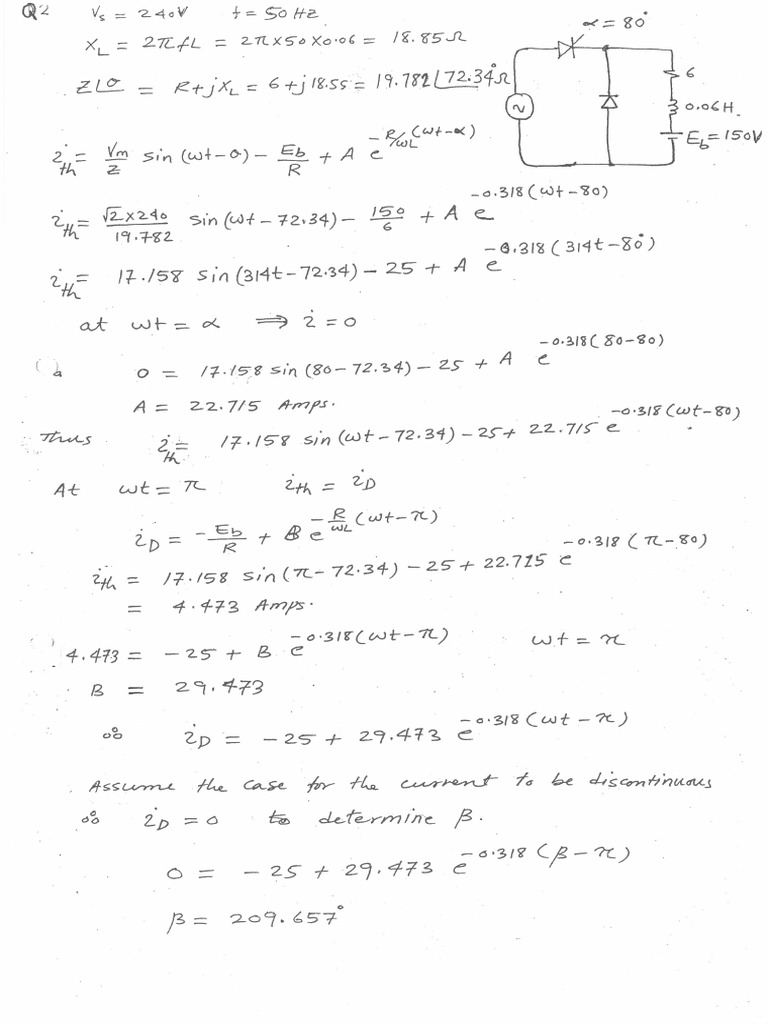 Q2 Vs = 240V f = 50 Hz
XL = 2πfL = 2π×50×0.06 = 18.85Ω
Z∠θ = R+jXL = 6+j18.55 = 19.782∠72.34°Ω
α = 80°
6
0.06H.
Eb = 150V
~
ith = Vm/Z sin (ωt-θ) - Eb/R + A e^(-R/ωL (ωt-α))
ith = √2×240/19.782 sin (ωt - 72.34) - 150/6 + A e^(-0.318(ωt-80))
ith = 17.158 sin (314t - 72.34) - 25 + A e^(-0.318(314t-80°))
at ωt = α ⟹ i = 0
0 = 17.158 sin (80 - 72.34) - 25 + A e^(-0.318(80-80))
A = 22.715 Amps.
Thus ith = 17.158 sin (ωt - 72.34) - 25 + 22.715 e^(-0.318(ωt-80))
At ωt = π ith = iD
iD = -Eb/R + B e^(-R/ωL (ωt-π))
ith = 17.158 sin (π - 72.34) - 25 + 22.715 e^(-0.318(π-80))
= 4.473 Amps.
4.473 = -25 + B e^(-0.318(ωt-π)) ωt = π
B = 29.473
∴ iD = -25 + 29.473 e^(-0.318(ωt-π))
Assume the case for the current to be discontinuous
∴ iD = 0 to determine β.
0 = -25 + 29.473 e^(-0.318(β-π))
β = 209.657°